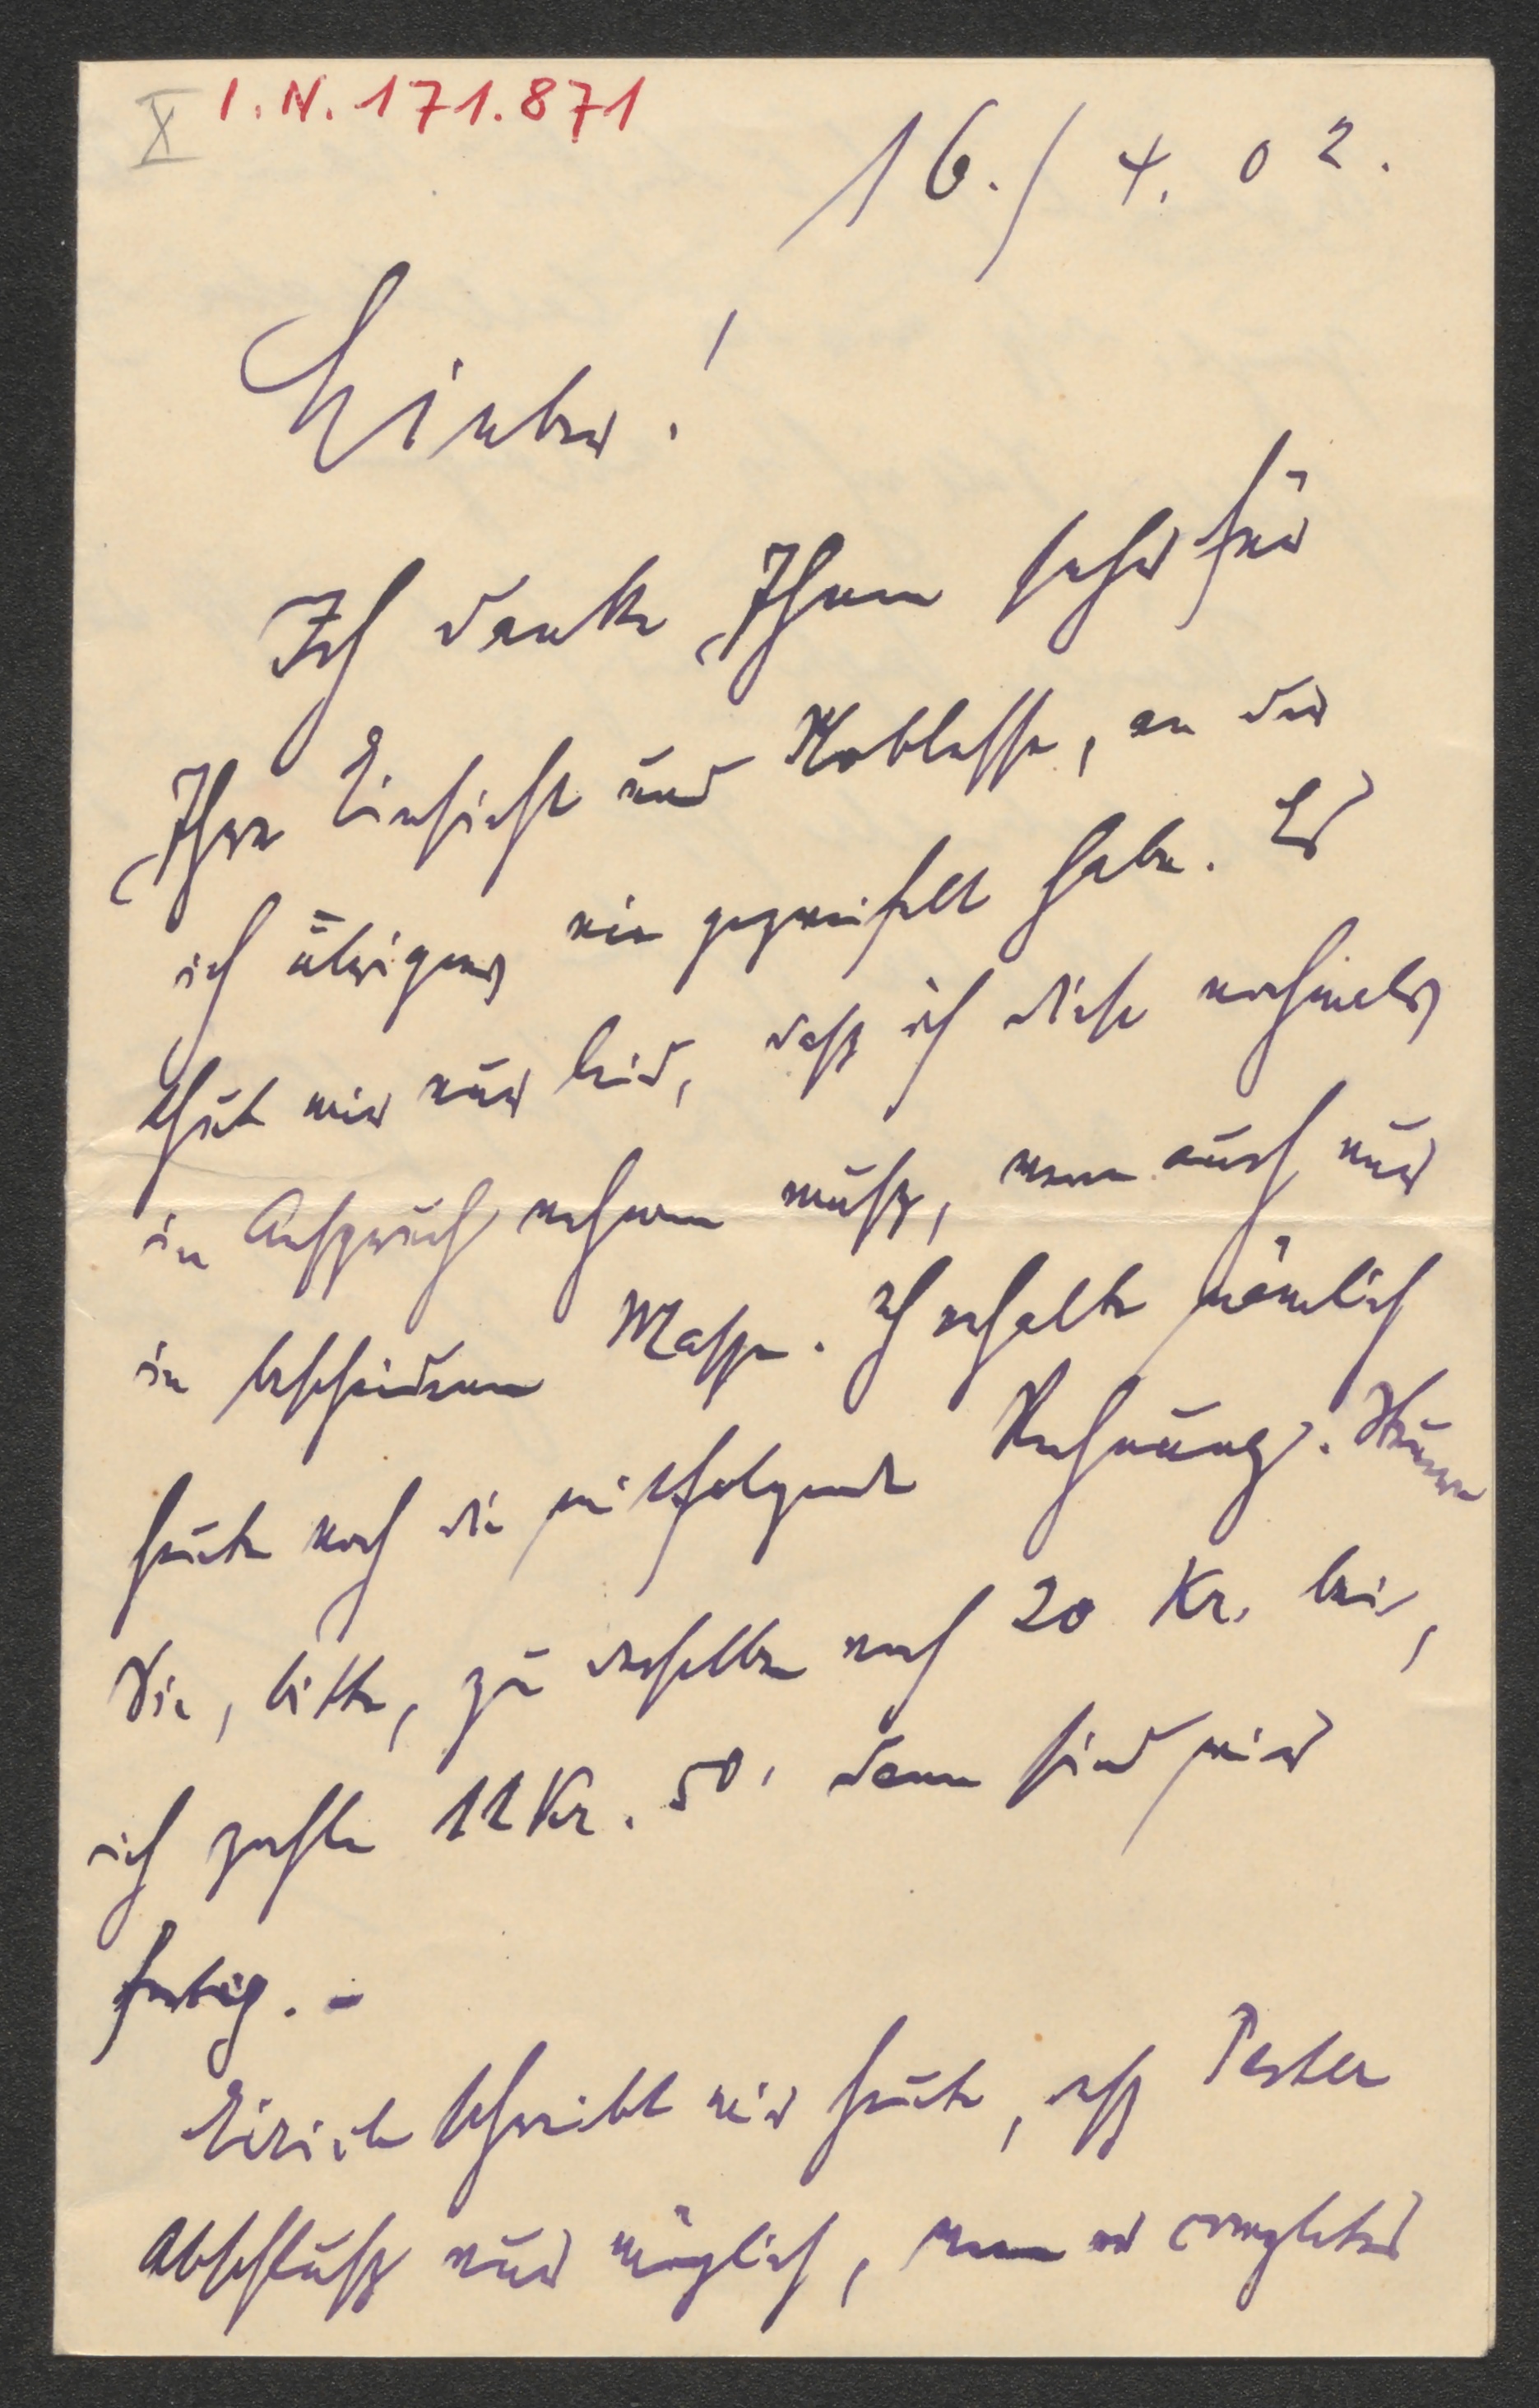 X I. N. 171.871
16./4. 02.
Lieber!
Ich danke Ihnen sehr für
Ihre Einsicht und Noblesse, an der
ich übrigens nie gezweifelt habe. Es
thut mir nur leid, daß ich diese nochmals
in Anspruch nehmen muß, wenn auch nur
in bescheidenem Masse. Ich erhalte nämlich
heute noch die mitfolgende Rechnung. Steuern
Sie, bitte, zu derselben noch 20 Kr. bei,
ich zahle 11 Kr. 50, dann sind wir
fertig. –
Eirich schreibt mir heute, daß Pester
Abschluß nur möglich, wenn er completes